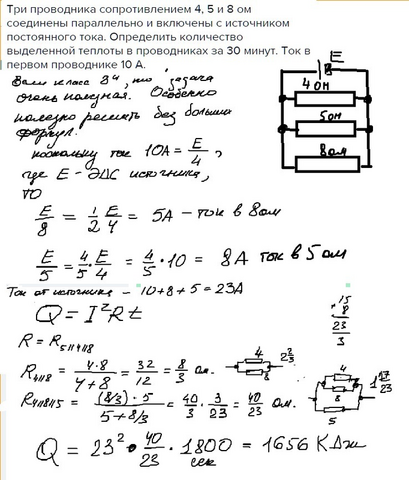 Три проводника сопротивлением 4, 5 и 8 ом
соединены параллельно и включены с источником
постоянного тока. Определить количество
выделенной теплоты в проводниках за 30 минут. Ток в
первом проводнике 10 А.
E
4 ом
5ом
8 ом
Если класс 8й, то задача
очень полезная. Особенно
полезно решить без больших
формул.
поскольку ток 10A = E/4,
где E - ЭДС источника,
то
E/8 = 1/2 E/4 = 5A - ток в 8 ом
E/5 = 4/5 · E/4 = 4/5 · 10 = 8A ток в 5 ом
Ток от источника - 10+8+5 = 23A
Q = I²Rt
R = R5||4||8
R4||8 = 4·8/4+8 = 32/12 = 8/3 ом.
4
8
2 2/3
R4||8||5 = (8/3)·5/5+8/3 = 40/3 · 3/23 = 40/23 ом.
15
8
23
3
4
8
5
1 17/23
Q = 23² · 40/23 · 1800 = 1656 КДж
сек